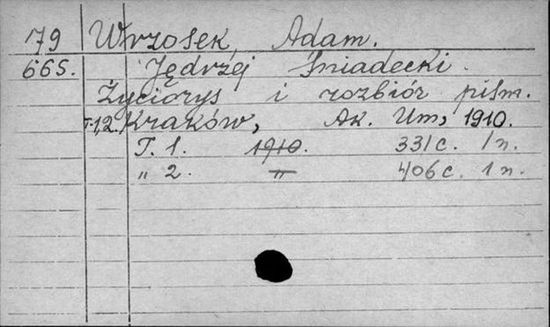 79 Wrzosek, Adam.
665. Jędrzej Śniadecki.
Życiorys i rozbiór pism.
T.1,2. Kraków, Ak. Um., 1910.
T. 1. 1910. 331 c. 1 n.
" 2. " 406 c. 1 n.